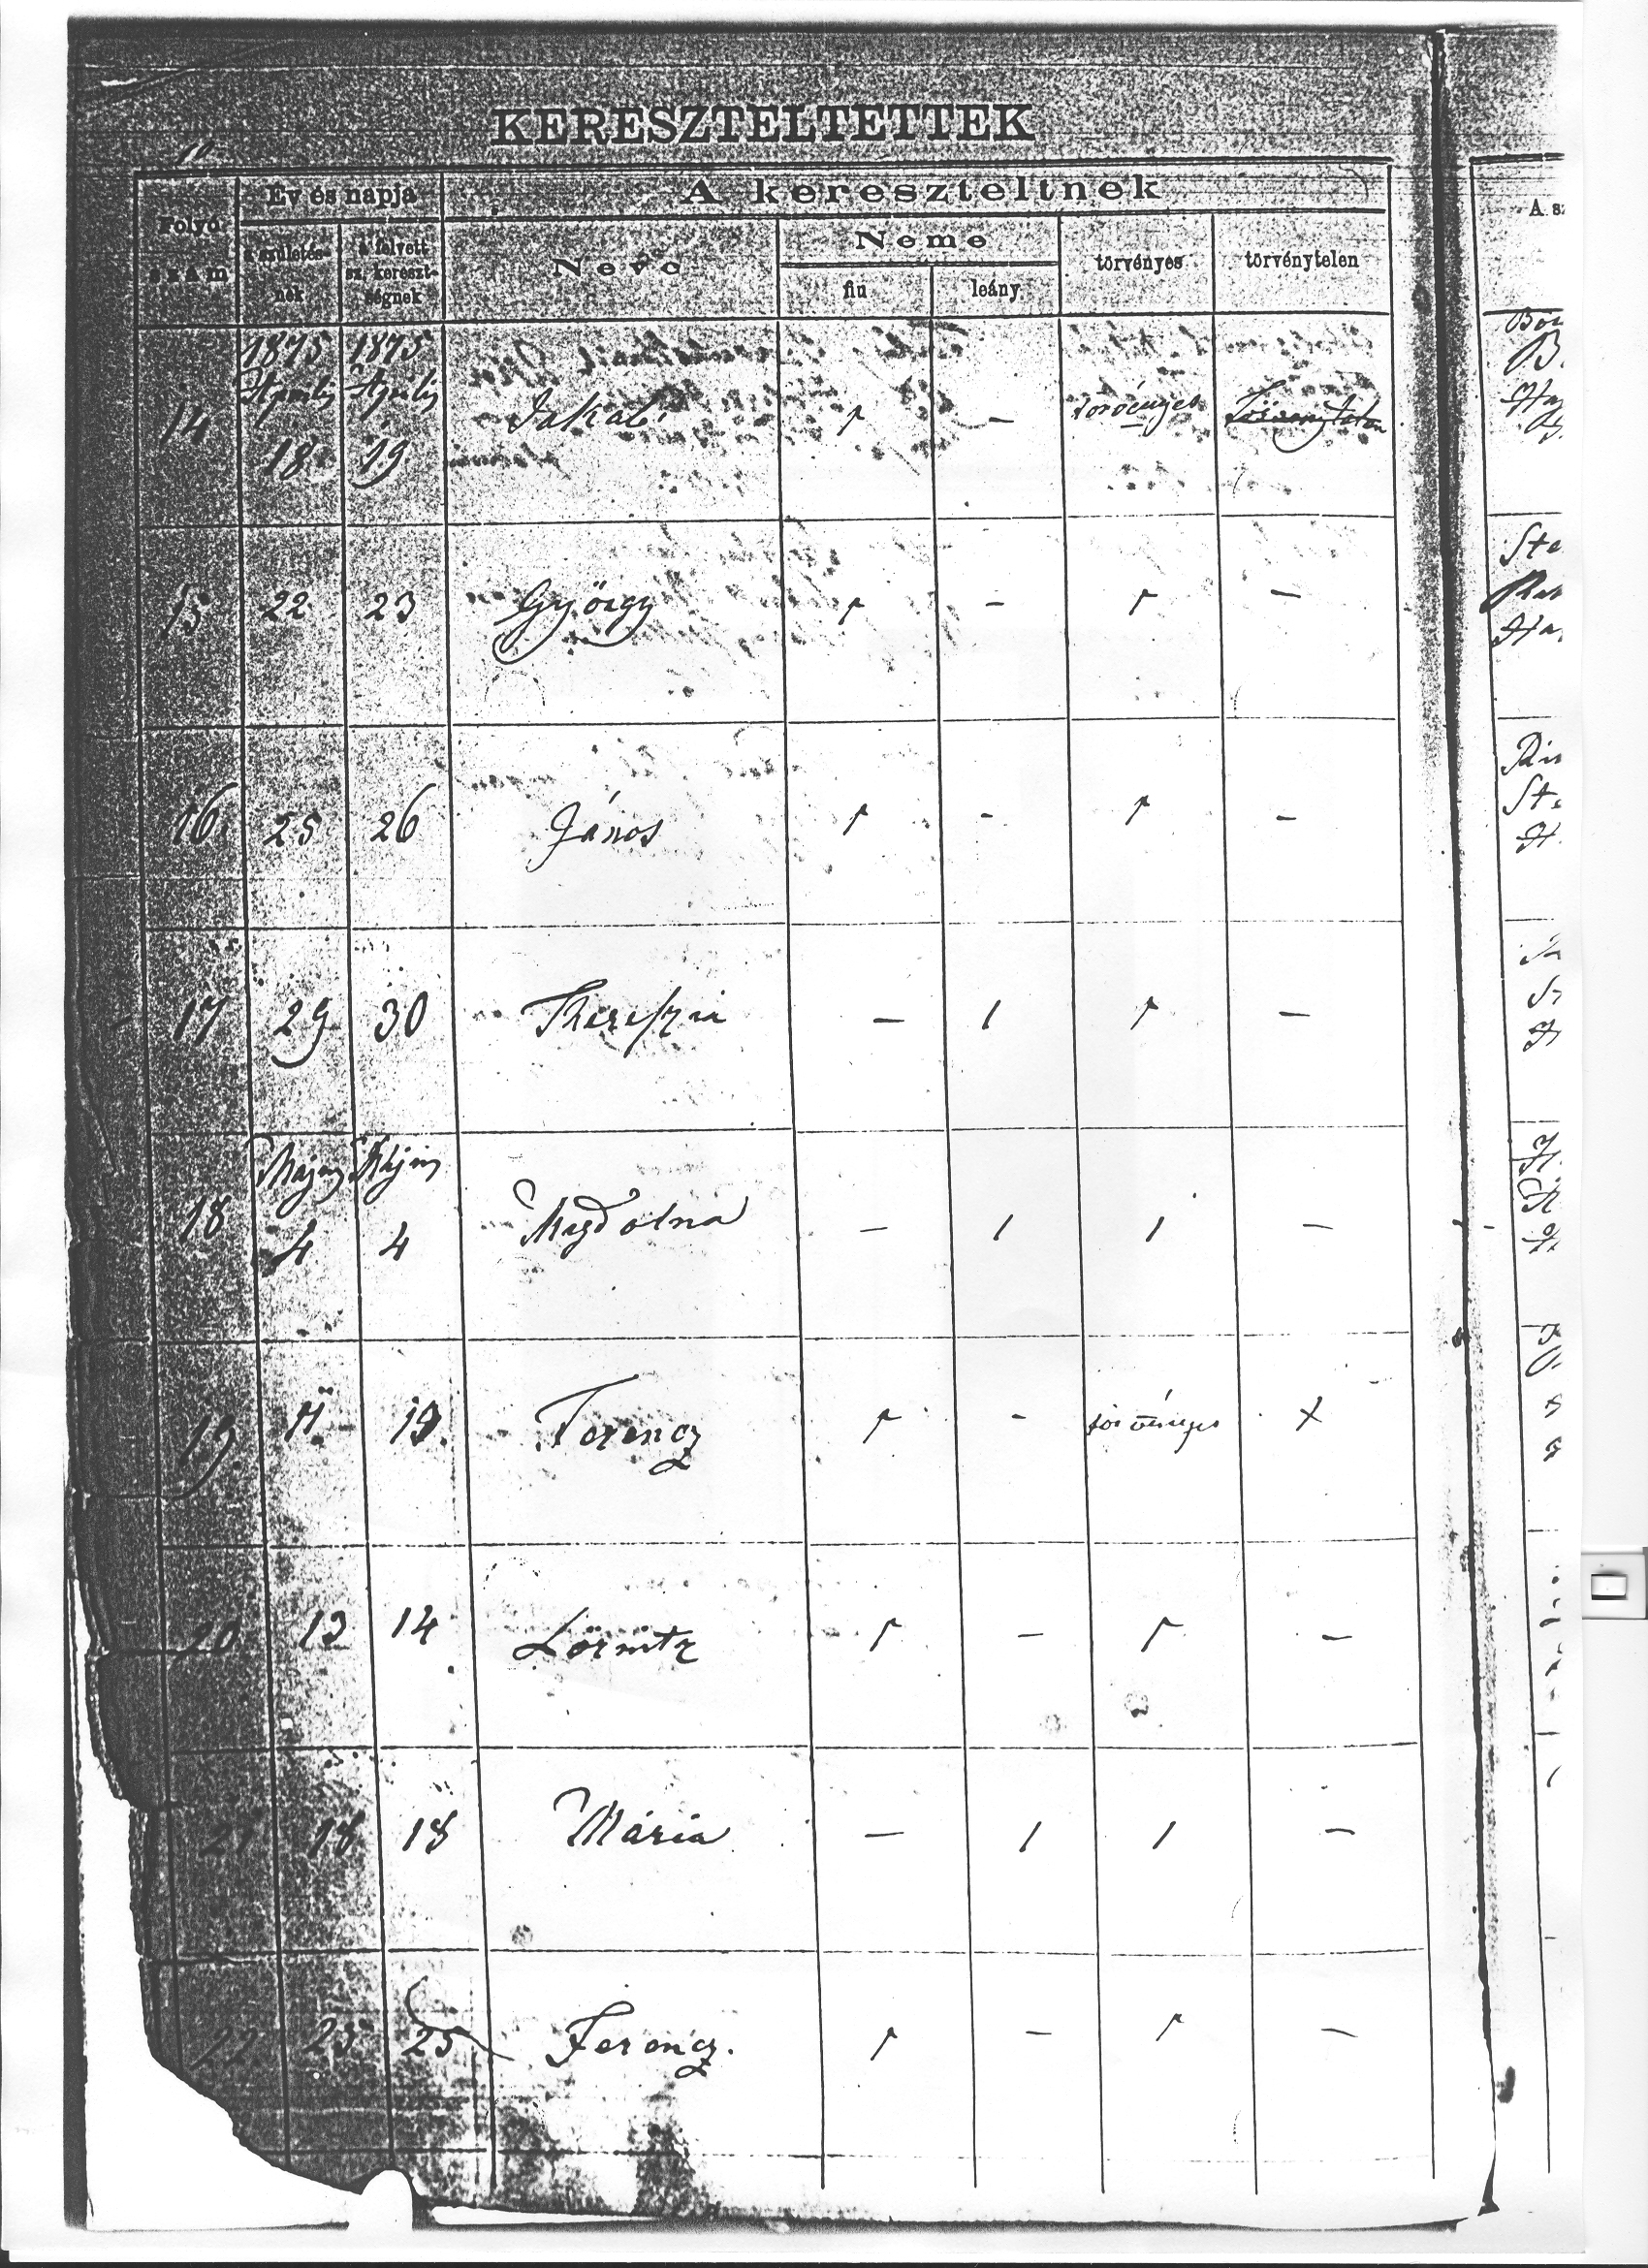 KERESZTELTETTEK
Folyó szám
Év és napja
A kereszteltnek
a születés-nek
a felvett sz. kereszt-ségnek
Neve
Neme
fiu
leány
törvényes
törvénytelen
A sz
1875 1875
Április Április
14 18 19 Jakab 1 — törvényes Törvenytelen
15 22 23 György 1 — 1 —
16 25 26 János 1 - 1 —
17 29 30 Therefzia — 1 1 —
Május Május
18 4 4 Magdolna — 1 1 —
19 11. 19. Ferencz 1 - törvényes X
20 13 14 Lörintz 1 — 1 —
21 18 18 Mária — 1 1 —
22 25 25 Ferencz. 1 — 1 —